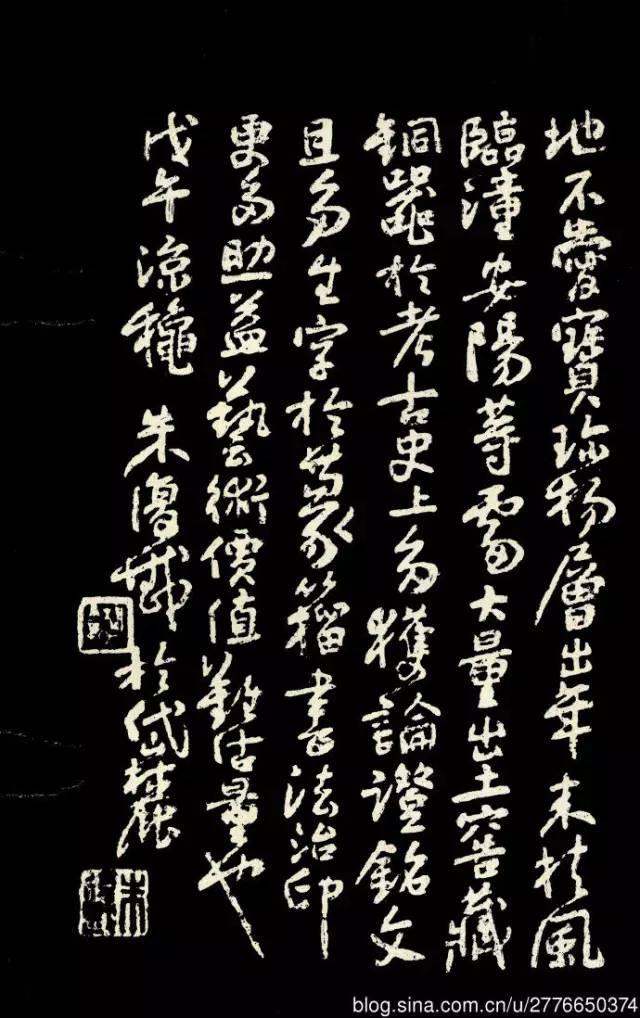 地不愛寶珍物層出年來扶風
臨潼安陽等處大量出土窖藏
銅器於考古史上多獲論證銘文
且多生字於篆籀書法治印
更多助益藝術價值難估量也
戊午涼龝 朱復戡於岱麓
blog.sina.com.cn/u/2776650374